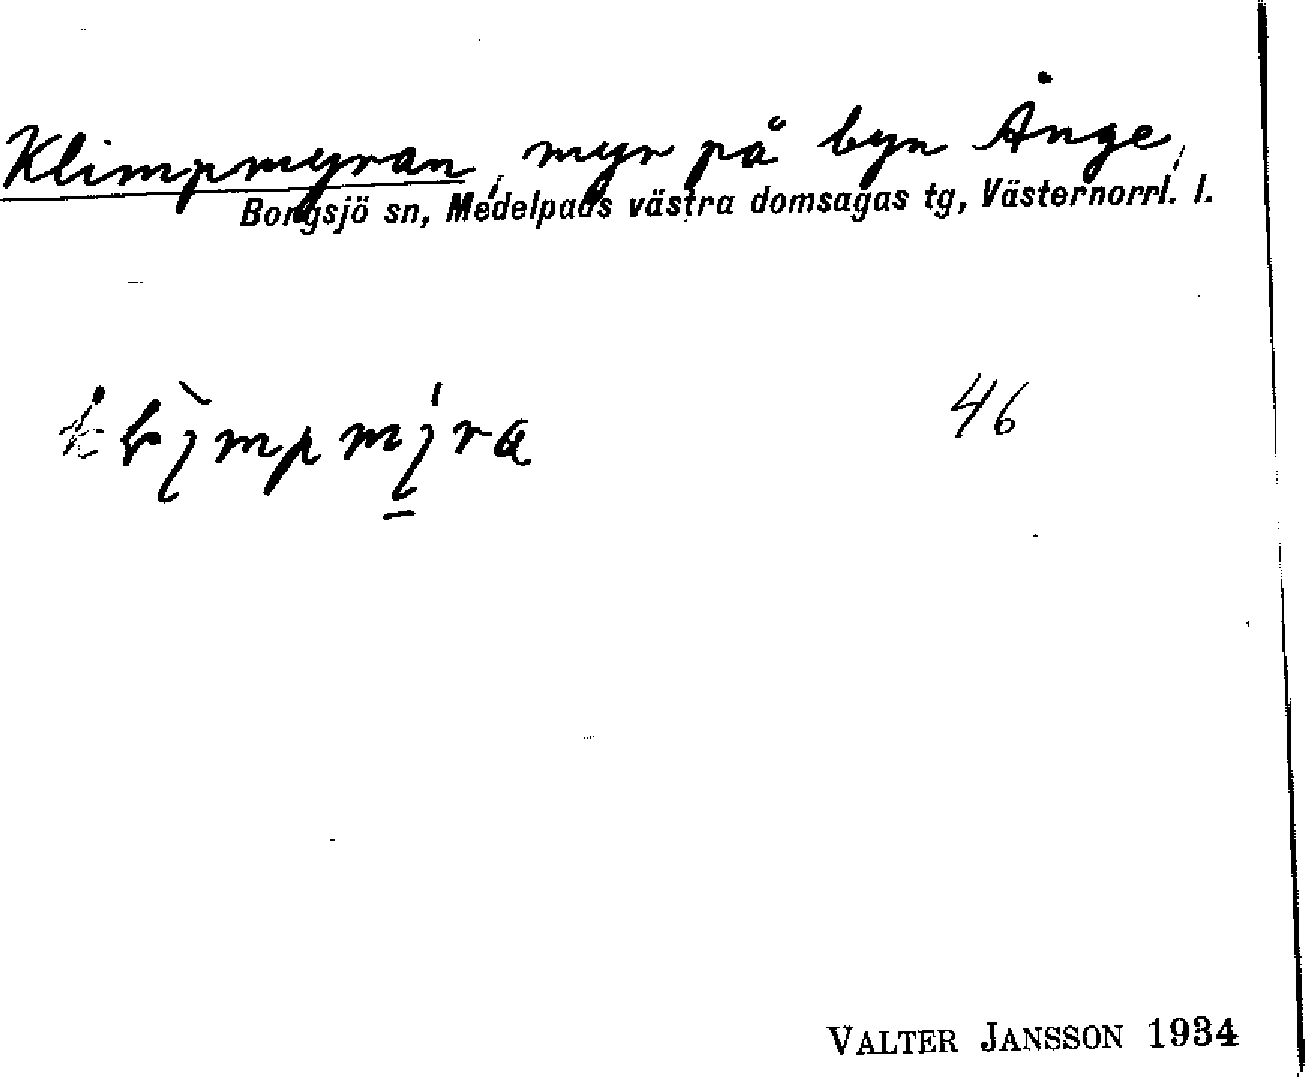 Klimpmyran, myr på byn Ånge,
Borgsjö sn, Medelpads västra domsagas tg, Västernorrl. l.
46
VALTER JANSSON 1934